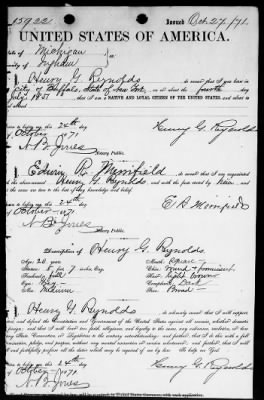 15922 Issued Oct. 27/71.
UNITED STATES OF AMERICA.
State of Michigan
County of Ingham
I, Henry G. Reynolds, do swear that I was born in
City of Buffalo, State of New York, on or about the fourth day
July 1851, that I am a NATIVE AND LOYAL CITIZEN OF THE UNITED STATES, and about
Sworn to before me, this 24th day
of October 1871
Henry G. Reynolds
N. B. Jones
Notary Public.
I, Edwin R. Merrifield, do swear that I am acquainted
with the above-named Henry G. Reynolds, and with the facts stated by him, and
that the same are true to the best of my knowledge and belief.
Sworn to before me, this 24th day
of October 1871
E R Merrifield
N. B. Jones
Notary Public.
Description of Henry G. Reynolds
Age: 20 years Mouth:
Stature: 5 feet 7 inches, Eng. Chin: round & prominent
Forehead: full Hair: light brown
Eyes: Complexion: Dark
Nose: Medium Face: Broad
I, Henry G. Reynolds, do solemnly swear that I will support,
protect, and defend the Constitution and Government of the United States against all enemies, whether domestic
or foreign; and that I will bear true faith, allegiance, and loyalty to the same, any ordinance, resolution, or law
of any State, Convention, or Legislature to the contrary notwithstanding; and further, that I do this with a full
determination, pledge, and purpose, without any mental reservation or evasion whatsoever; and further, that I will
well and faithfully perform all the duties which may be required of me by law. So help me God.
Sworn to before me, this 24th day
of October 1871
Henry G. Reynolds
N B Jones